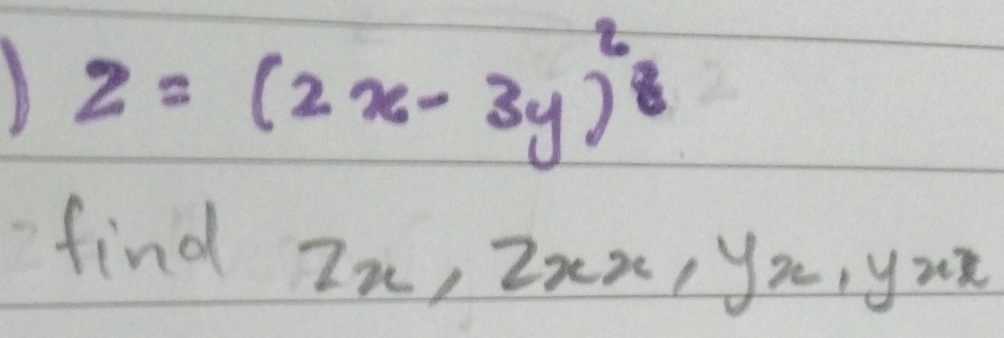 ) z = (2x - 3y)²
find zx, zxx, yx, yxx